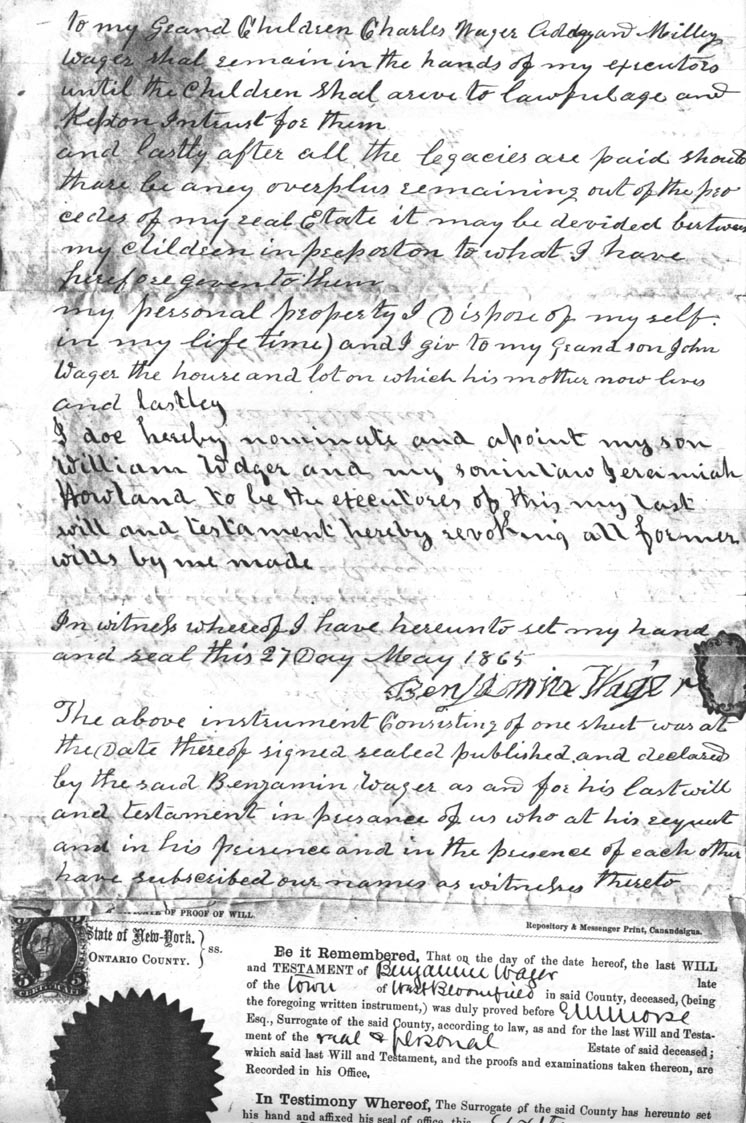 to my Grand Children Charles Wager Addy and Milley
Wager shal remain in the hands of my executors
until the Children shal arive to lawful age and
Kept on Intrust for them
and lastly after all the legacies are paid should
thare be aney overplus remaining out of the pro
cedes of my real Estate it may be devided between
my children in preporton to what I have
herefore given to them
my personal property I Dispose of my self
in my life time) and I giv to my Grand son John
Wager the house and lot on which his mother now lives
and lastley
I doe hereby nominate and apoint my son
William Wager and my son in law Jeremiah
Howland to be the executores of this my last
will and testament hereby revoking all former
wills by me made
In witness whereof I have hereunto set my hand
and seal this 27 Day May 1865
Benjemine Wager
The above instrument Consisting of one sheet was at
the Date thereof signed sealed published and declared
by the said Benjamin Wager as and for his last will
and testament in presance of us who at his request
and in his presence and in the presence of each other
have subscribed our names as witnesses thereto
OF PROOF OF WILL.
Repository & Messenger Print, Canandaigua.
State of New-York.
ONTARIO COUNTY. } ss.
Be it Remembered, That on the day of the date hereof, the last WILL
and TESTAMENT of Benjamin Wager late
of the town of West Bloomfield in said County, deceased, (being
the foregoing written instrument,) was duly proved before E W Morse
Esq., Surrogate of the said County, according to law, as and for the last Will and Testa-
ment of the real & personal Estate of said deceased;
which said last Will and Testament, and the proofs and examinations taken thereon, are
Recorded in his Office.
In Testimony Whereof, The Surrogate of the said County has hereunto set
his hand and affixed his seal of office, this